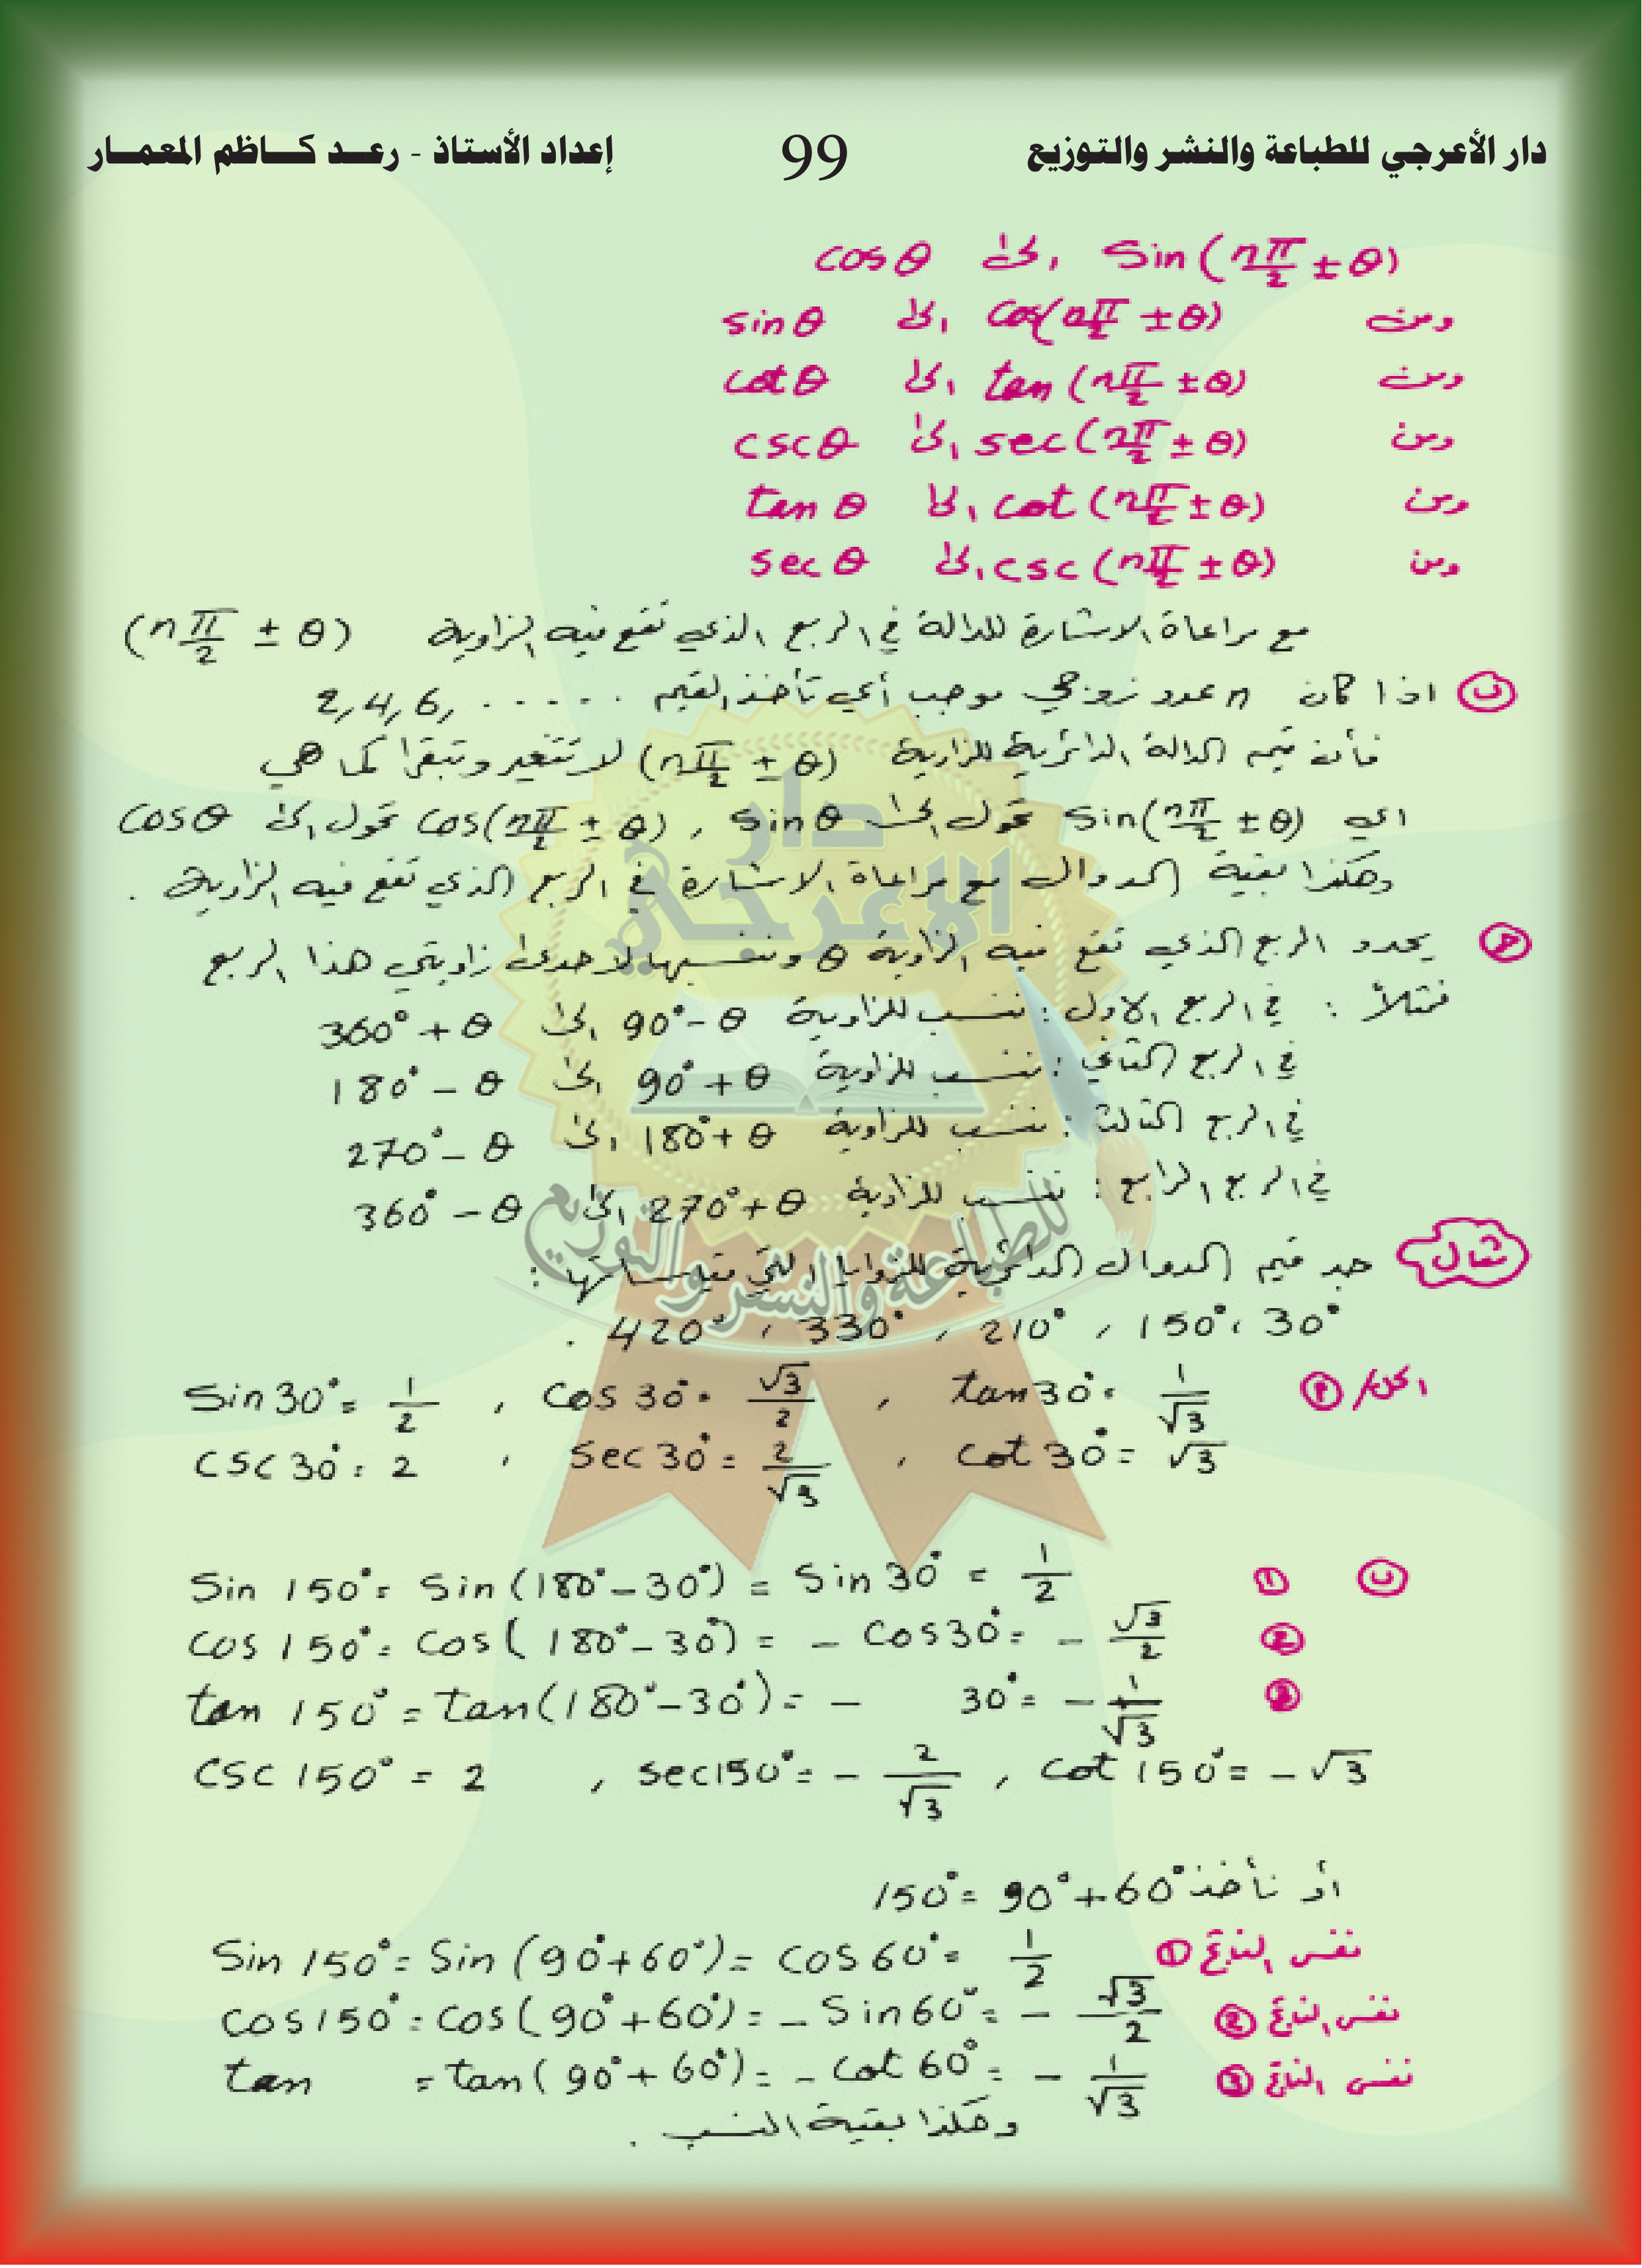 دار الأعرجي للطباعة والنشر والتوزيع 99 إعداد الأستاذ - رعـد كـاظم المعمـار
Sin(nπ/2 ± θ) الى cosθ
ومن cos(nπ/2 ± θ) الى sinθ
ومن tan(nπ/2 ± θ) الى cotθ
ومن sec(nπ/2 ± θ) الى cscθ
ومن cot(nπ/2 ± θ) الى tanθ
ومن csc(nπ/2 ± θ) الى secθ
مع مراعاة الاشارة للدالة في الربع الذي تقع فيه الزاوية (nπ/2 ± θ)
ب اذا كان n عدد زوجي موجب أي تأخذ القيم 2,4,6, .....
فأن قيم الدالة الدائرية للزاوية (nπ/2 ± θ) لا تتغير وتبقى كما هي
اي Sin(nπ/2 ± θ) تحول الى Sinθ , Cos(nπ/2 ± θ) تحول الى Cosθ
وهكذا بقية الدوال مع مراعاة الاشارة في الربع الذي تقع فيه الزاوية .
جـ يحدد الربع الذي تقع فيه الزاوية θ وننسبها لاحدى زاويتي هذا الربع
فمثلاً : في الربع الاول : ننسب للزاوية 90°-θ الى 360°+θ
في الربع الثاني : ننسب للزاوية 90°+θ الى 180°-θ
في الربع الثالث : ننسب للزاوية 180°+θ الى 270°-θ
في الربع الرابع : ننسب للزاوية 270°+θ الى 360°-θ
مثال جد قيم الدوال الدائرية للزوايا التي قياساتها :
30° , 150° , 210° , 330° , 420° .
الحل/ ٢ Sin30° = 1/2 , cos30° = √3/2 , tan30° = 1/√3
CSC30° = 2 , Sec30° = 2/√3 , cot30° = √3
ب ① Sin 150° = Sin(180°-30°) = Sin30° = 1/2
② cos 150° = cos(180°-30°) = - cos30° = - √3/2
③ tan 150° = tan(180°-30°) = - 30° = - 1/√3
CSC 150° = 2 , sec150° = - 2/√3 , cot 150° = -√3
أو نأخذ 150° = 90°+60°
Sin 150° = Sin(90°+60°) = cos60° = 1/2 نفس الناتج ①
cos150° = cos(90°+60°) = - Sin60° = - √3/2 نفس الناتج ②
tan = tan(90°+60°) = - cot60° = - 1/√3 نفس الناتج ③
وهكذا بقية النسب .
دار
الاعرجي
للطباعة والنشر والتوزيع